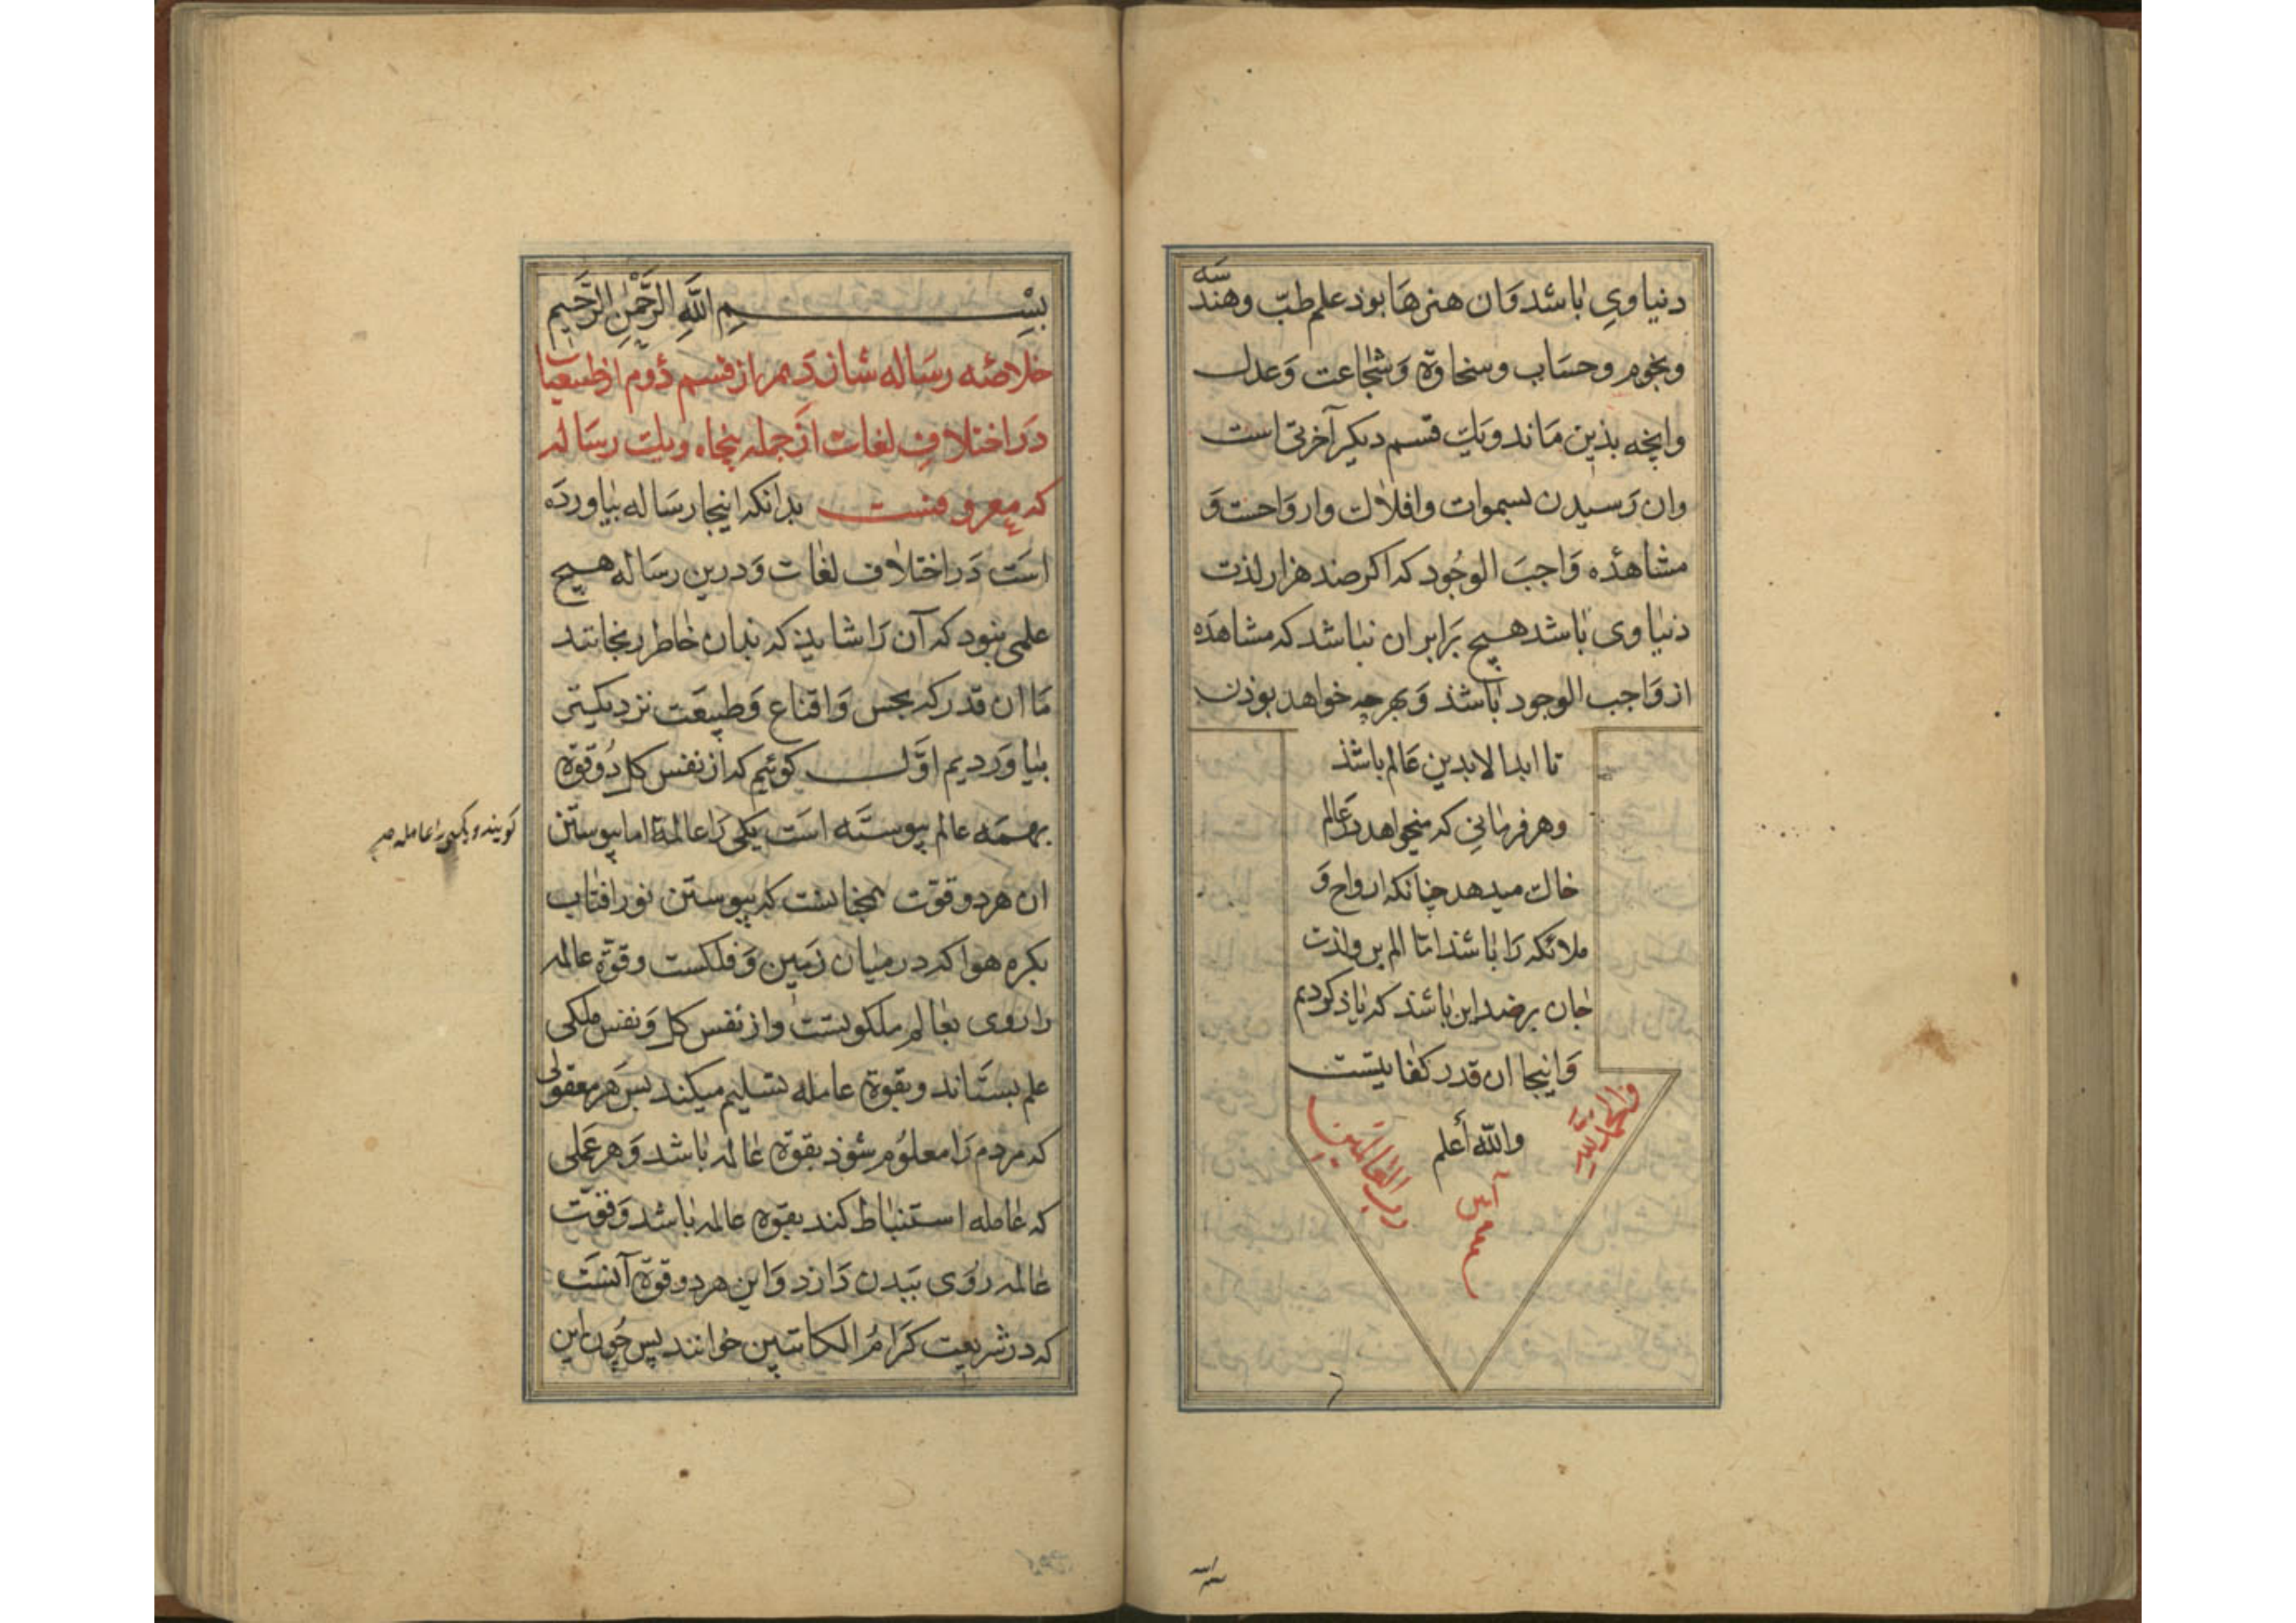 دنیاوی باشد وان هنرها بوذ علم طبّ وهندسه
ونجوم وحساب وسخاوة وشجاعت وعدل
وانچه بذین ماند ویک قسم دیکر آخرتی است
وان رسیدن بسموات وافلاک وارواحست و
مشاهذه واجب الوجود که اکر صد هزار لذت
دنیاوی باشد هیچ برابر ان نباشد که مشاهده
از واجب الوجود باشذ وبهرچه خواهد بوذن
تا ابد الابدین عالم باشذ
وهر فرمانی که میخواهد در عالم
خاک میدهد چنانکه ارواح و
ملائکه را باشد اما الم بر ولذت
جان بر ضد این باشد که یاذ کردیم
واینجا ان قدر کفایتست
والله أعلم
والحمد لله
رب العالمین
آمین
بسم الله الرحمن الرحیم
خلاصه رساله شانزدیهم از قسم دوم از طبیعیات
در اختلاف لغات از جمله پنجاه ویک رساله
که معروفست بدانکه اینجا رساله بیاورده
است در اختلاف لغات ودرین رساله هیچ
علمی نبود که آن را شایذ که بدان خاطر رنجانند
ما ان قدر که بحس واقناع وطبیعت نزدیکتر
بیاوردیم اول کوئیم که از نفس کل دو قوة
بهمه عالم پیوسته است یکی را عالمة اما پیوستن
کویند ویکی را عاملة صح
ان هر دو قوّت همچنانست که پیوستن نور افتاب
بکره هوا که در میان زمین وفلکست وقوّة عالمه
را روی بعالم ملکوتست واز نفس کل ونفس ملکی
علم بستاند وبقوة عامله تسلیم میکند پس هر معقولی
که مردم را معلوم شوذ بقوة عالمه باشد وهر عملی
که عامله استنباط کند بقوه عالمه باشد وقوّت
عالمه روی ببدن دارد واین هر دو قوة آنست
که در شریعت کرام الکاتبین خوانند پس چون این